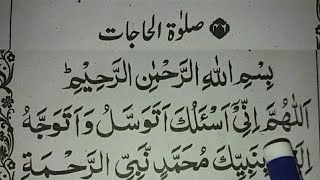 صلوٰة الحاجات
بِسْمِ اللهِ الرَّحْمٰنِ الرَّحِيْمِ
اَللّٰهُمَّ اِنِّىْٓ اَسْئَلُكَ اَتَوَسَّلُ وَاَتَوَجَّهُ
بِنَبِيِّكَ مُحَمَّدٍ نَّبِىِّ الرَّحْمَةِ